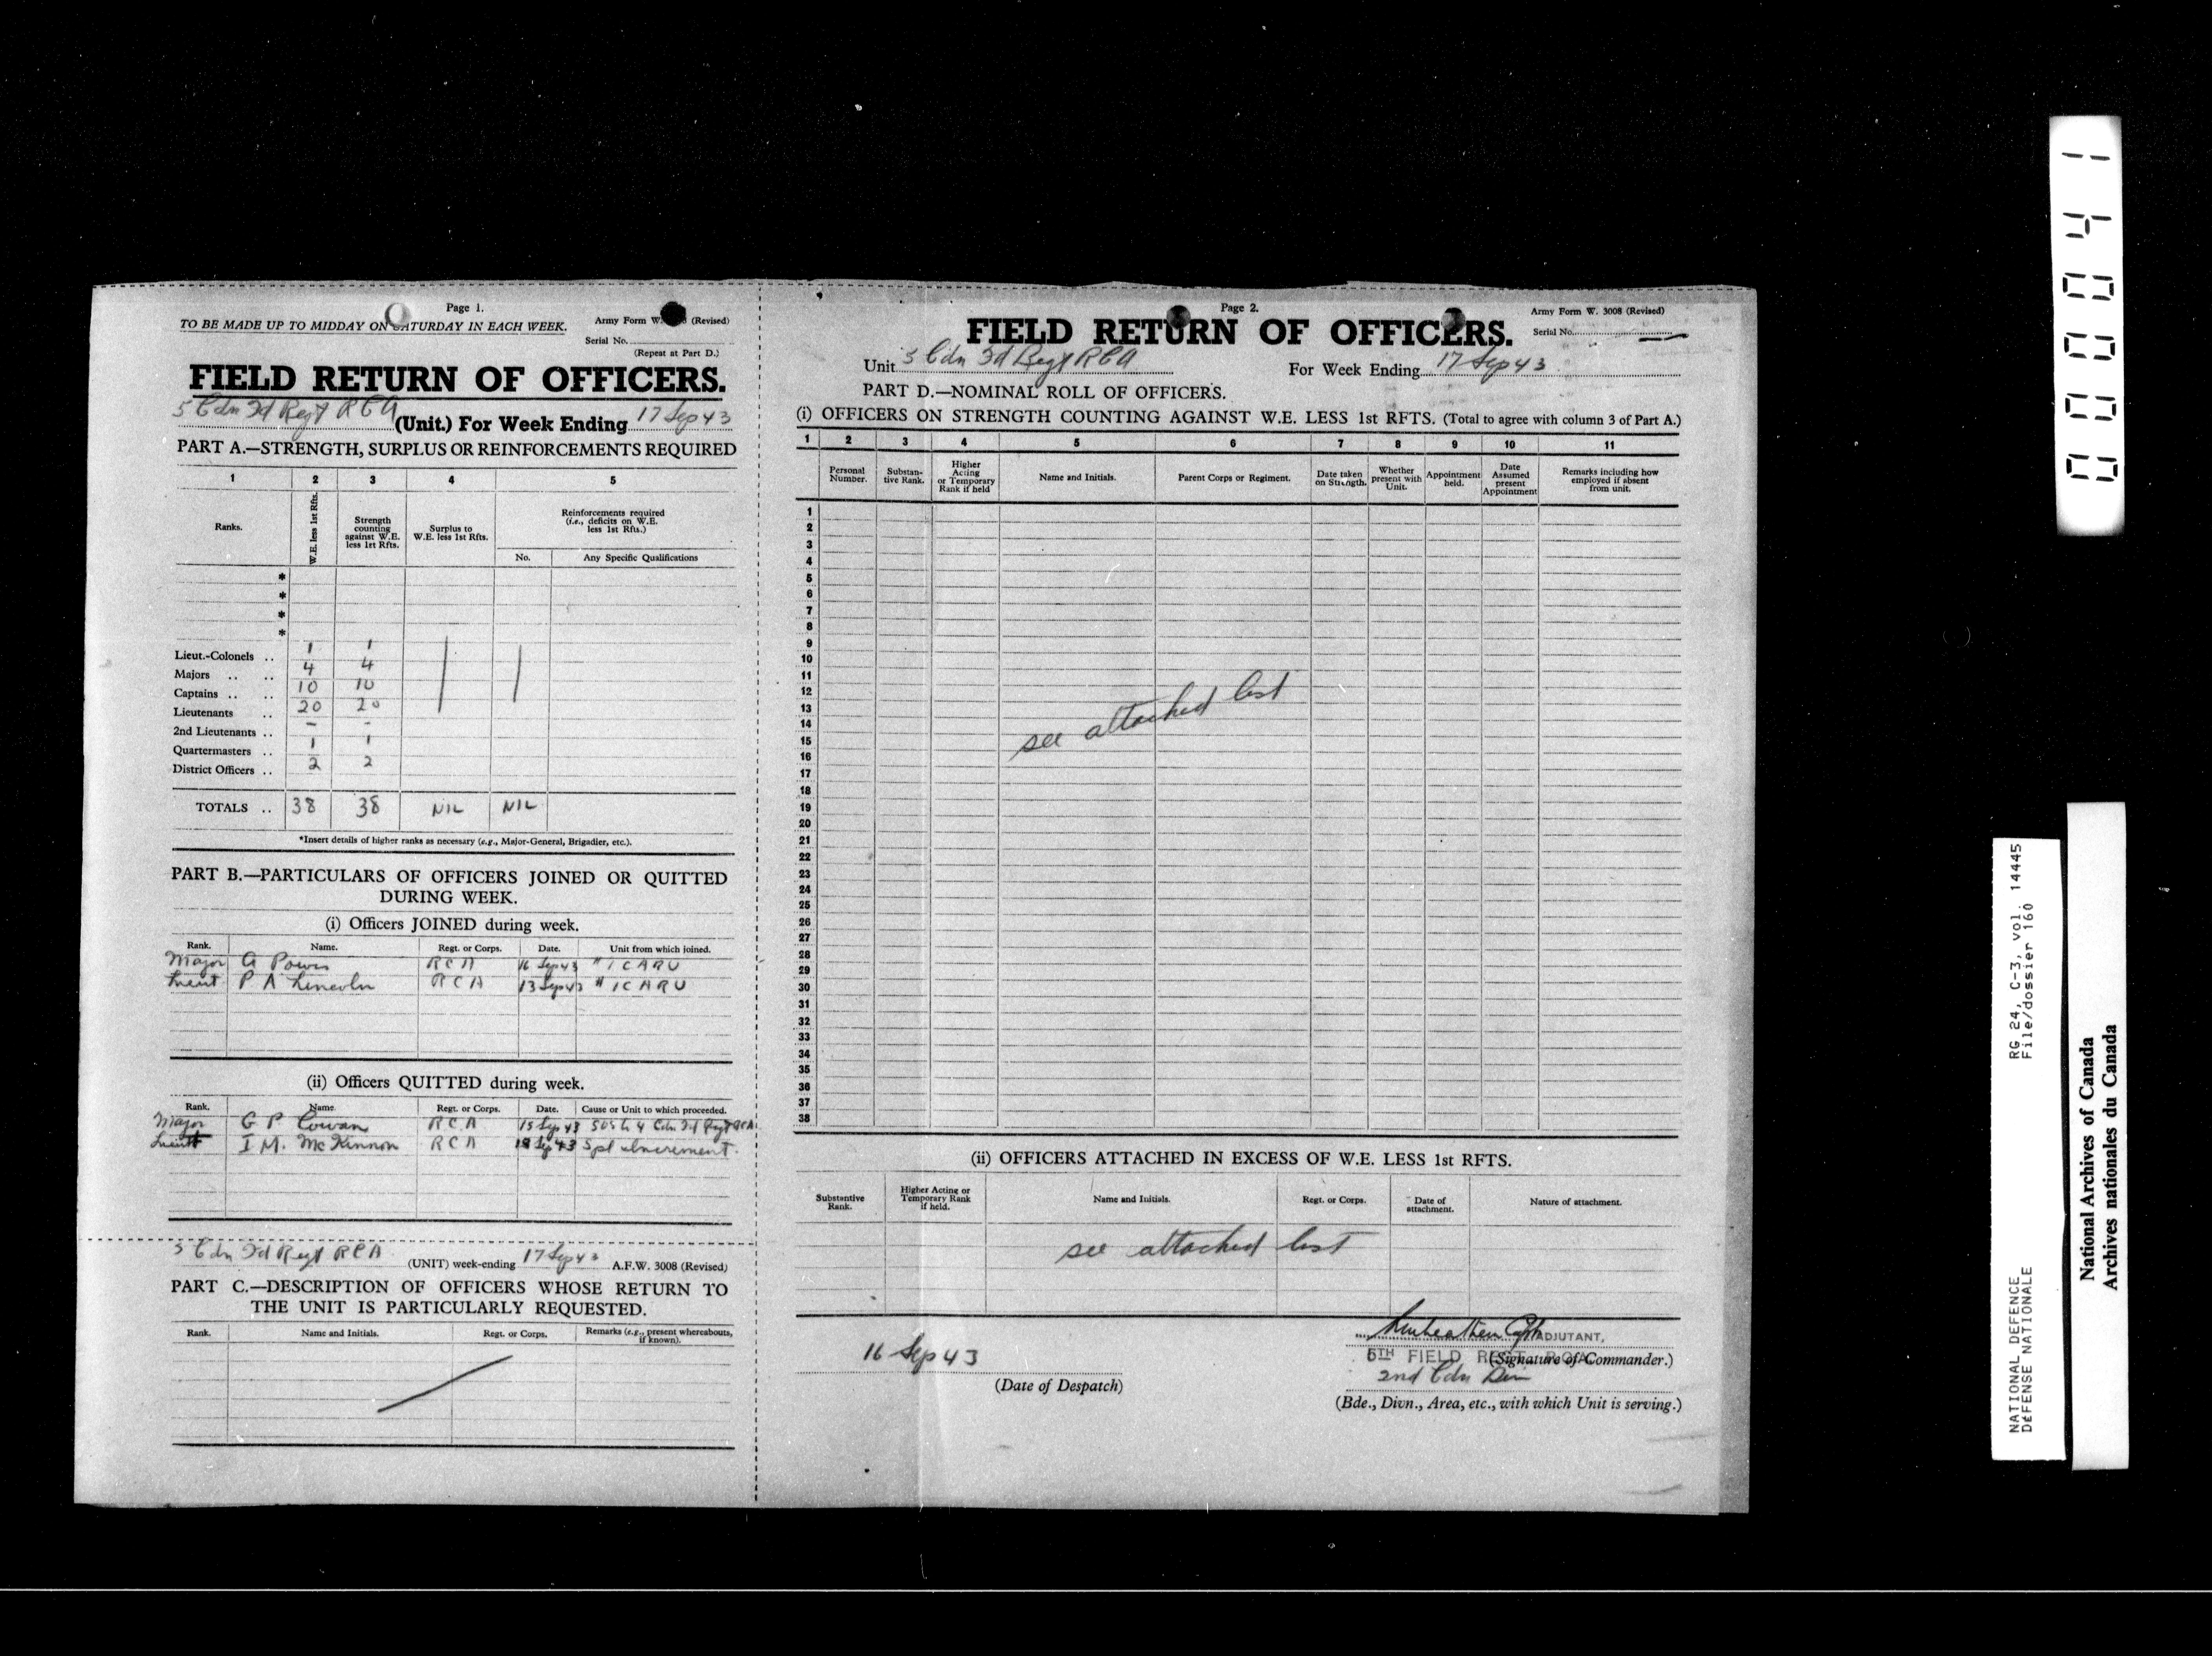 Page 1.
TO BE MADE UP TO MIDDAY ON SATURDAY IN EACH WEEK.
Army Form W. (Revised)
Serial No.
(Repeat at Part D.)
FIELD RETURN OF OFFICERS.
5 Cdn Fd Regt RCA (Unit.) For Week Ending 17 Sep 43
PART A.—STRENGTH, SURPLUS OR REINFORCEMENTS REQUIRED
1 2 3 4 5
Ranks. W.E. less 1st Rfts. Strength counting against W.E. less 1rt Rfts. Surplus to W.E. less 1st Rfts. Reinforcements required (i.e., deficits on W.E. less 1st Rfts.)
No. Any Specific Qualifications
*
*
*
*
Lieut.-Colonels .. 1 1
Majors .. .. 4 4
Captains .. .. 10 10
Lieutenants .. 20 20
2nd Lieutenants .. - -
Quartermasters .. 1 1
District Officers .. 2 2
TOTALS .. 38 38 NIL NIL
*Insert details of higher ranks as necessary (e.g., Major-General, Brigadier, etc.).
PART B.—PARTICULARS OF OFFICERS JOINED OR QUITTED
DURING WEEK.
(i) Officers JOINED during week.
Rank. Name. Regt. or Corps. Date. Unit from which joined.
Major G Powis RCA 16 Sep 43 #1 CARU
Lieut P A Lincoln RCA 13 Sep 43 #1 CARU
(ii) Officers QUITTED during week.
Rank. Name. Regt. or Corps. Date. Cause or Unit to which proceeded.
Major G P Cowan RCA 15 Sep 43 SOS to 4 Cdn Fd Regt RCA
Lieut I M. McKinnon RCA Sep 43 Spl increment.
5 Cdn Fd Regt RCA (UNIT) week-ending 17 Sep 43 A.F.W. 3008 (Revised)
PART C.—DESCRIPTION OF OFFICERS WHOSE RETURN TO
THE UNIT IS PARTICULARLY REQUESTED.
Rank. Name and Initials. Regt. or Corps. Remarks (e.g., present whereabouts, if known).
Page 2.
Army Form W. 3008 (Revised)
FIELD RETURN OF OFFICERS.
Serial No.
Unit 5 Cdn Fd Regt RCA For Week Ending 17 Sep 43
PART D.—NOMINAL ROLL OF OFFICERS.
(i) OFFICERS ON STRENGTH COUNTING AGAINST W.E. LESS 1st RFTS. (Total to agree with column 3 of Part A.)
1 2 3 4 5 6 7 8 9 10 11
Personal Number. Substantive Rank. Higher Acting or Temporary Rank if held Name and Initials. Parent Corps or Regiment. Date taken on Strength. Whether present with Unit. Appointment held. Date Assumed present Appointment Remarks including how employed if absent from unit.
1
2
3
4
5
6
7
8
9
10
11
12
13
14
15
16
17
18
19
20
21
22
23
24
25
26
27
28
29
30
31
32
33
34
35
36
37
38
see attached list
(ii) OFFICERS ATTACHED IN EXCESS OF W.E. LESS 1st RFTS.
Substantive Rank. Higher Acting or Temporary Rank if held. Name and Initials. Regt. or Corps. Date of attachment. Nature of attachment.
see attached list
16 Sep 43
(Date of Despatch)
Capt ADJUTANT,
5TH FIELD REGT. R.C.A.
(Signature of Commander.)
2nd Cdn Div
(Bde., Divn., Area, etc., with which Unit is serving.)
000041
RG 24, C-3, vol. 14445
File/dossier 160
NATIONAL DEFENCE
DÉFENSE NATIONALE
National Archives of Canada
Archives nationales du Canada